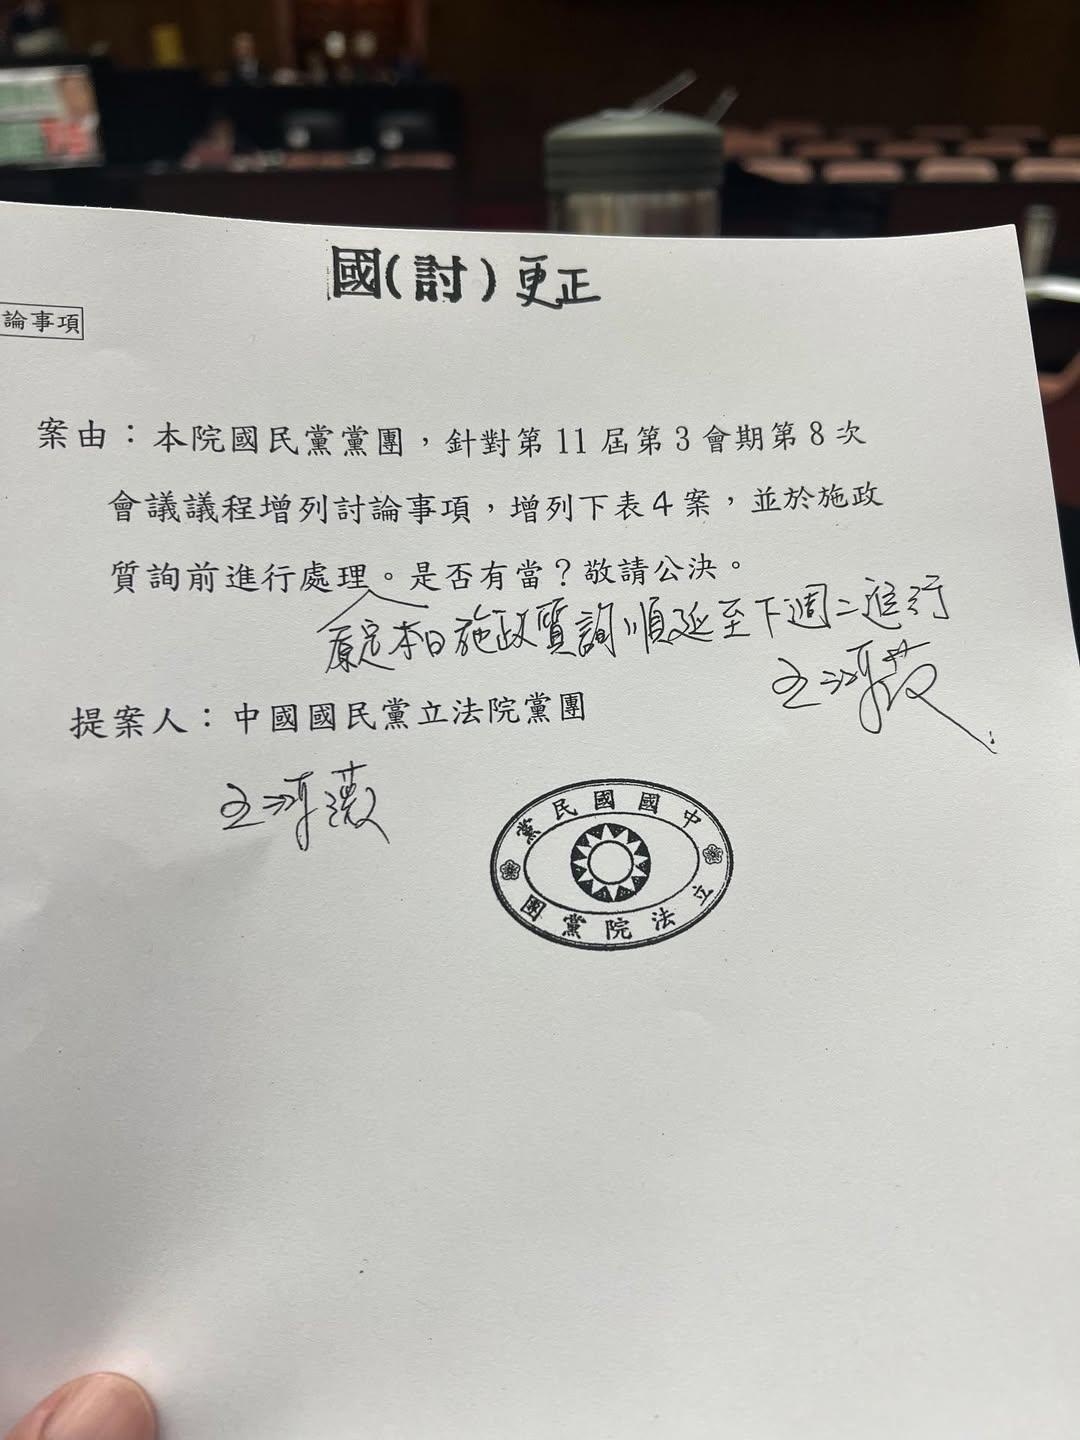 國(討)更正
論事項
案由：本院國民黨黨團，針對第11屆第3會期第8次
會議議程增列討論事項，增列下表4案，並於施政
質詢前進行處理。是否有當？敬請公決。
原定本日施政質詢順延至下週二進行
王鴻薇
提案人：中國國民黨立法院黨團
王鴻薇
中國國民黨
立法院黨團